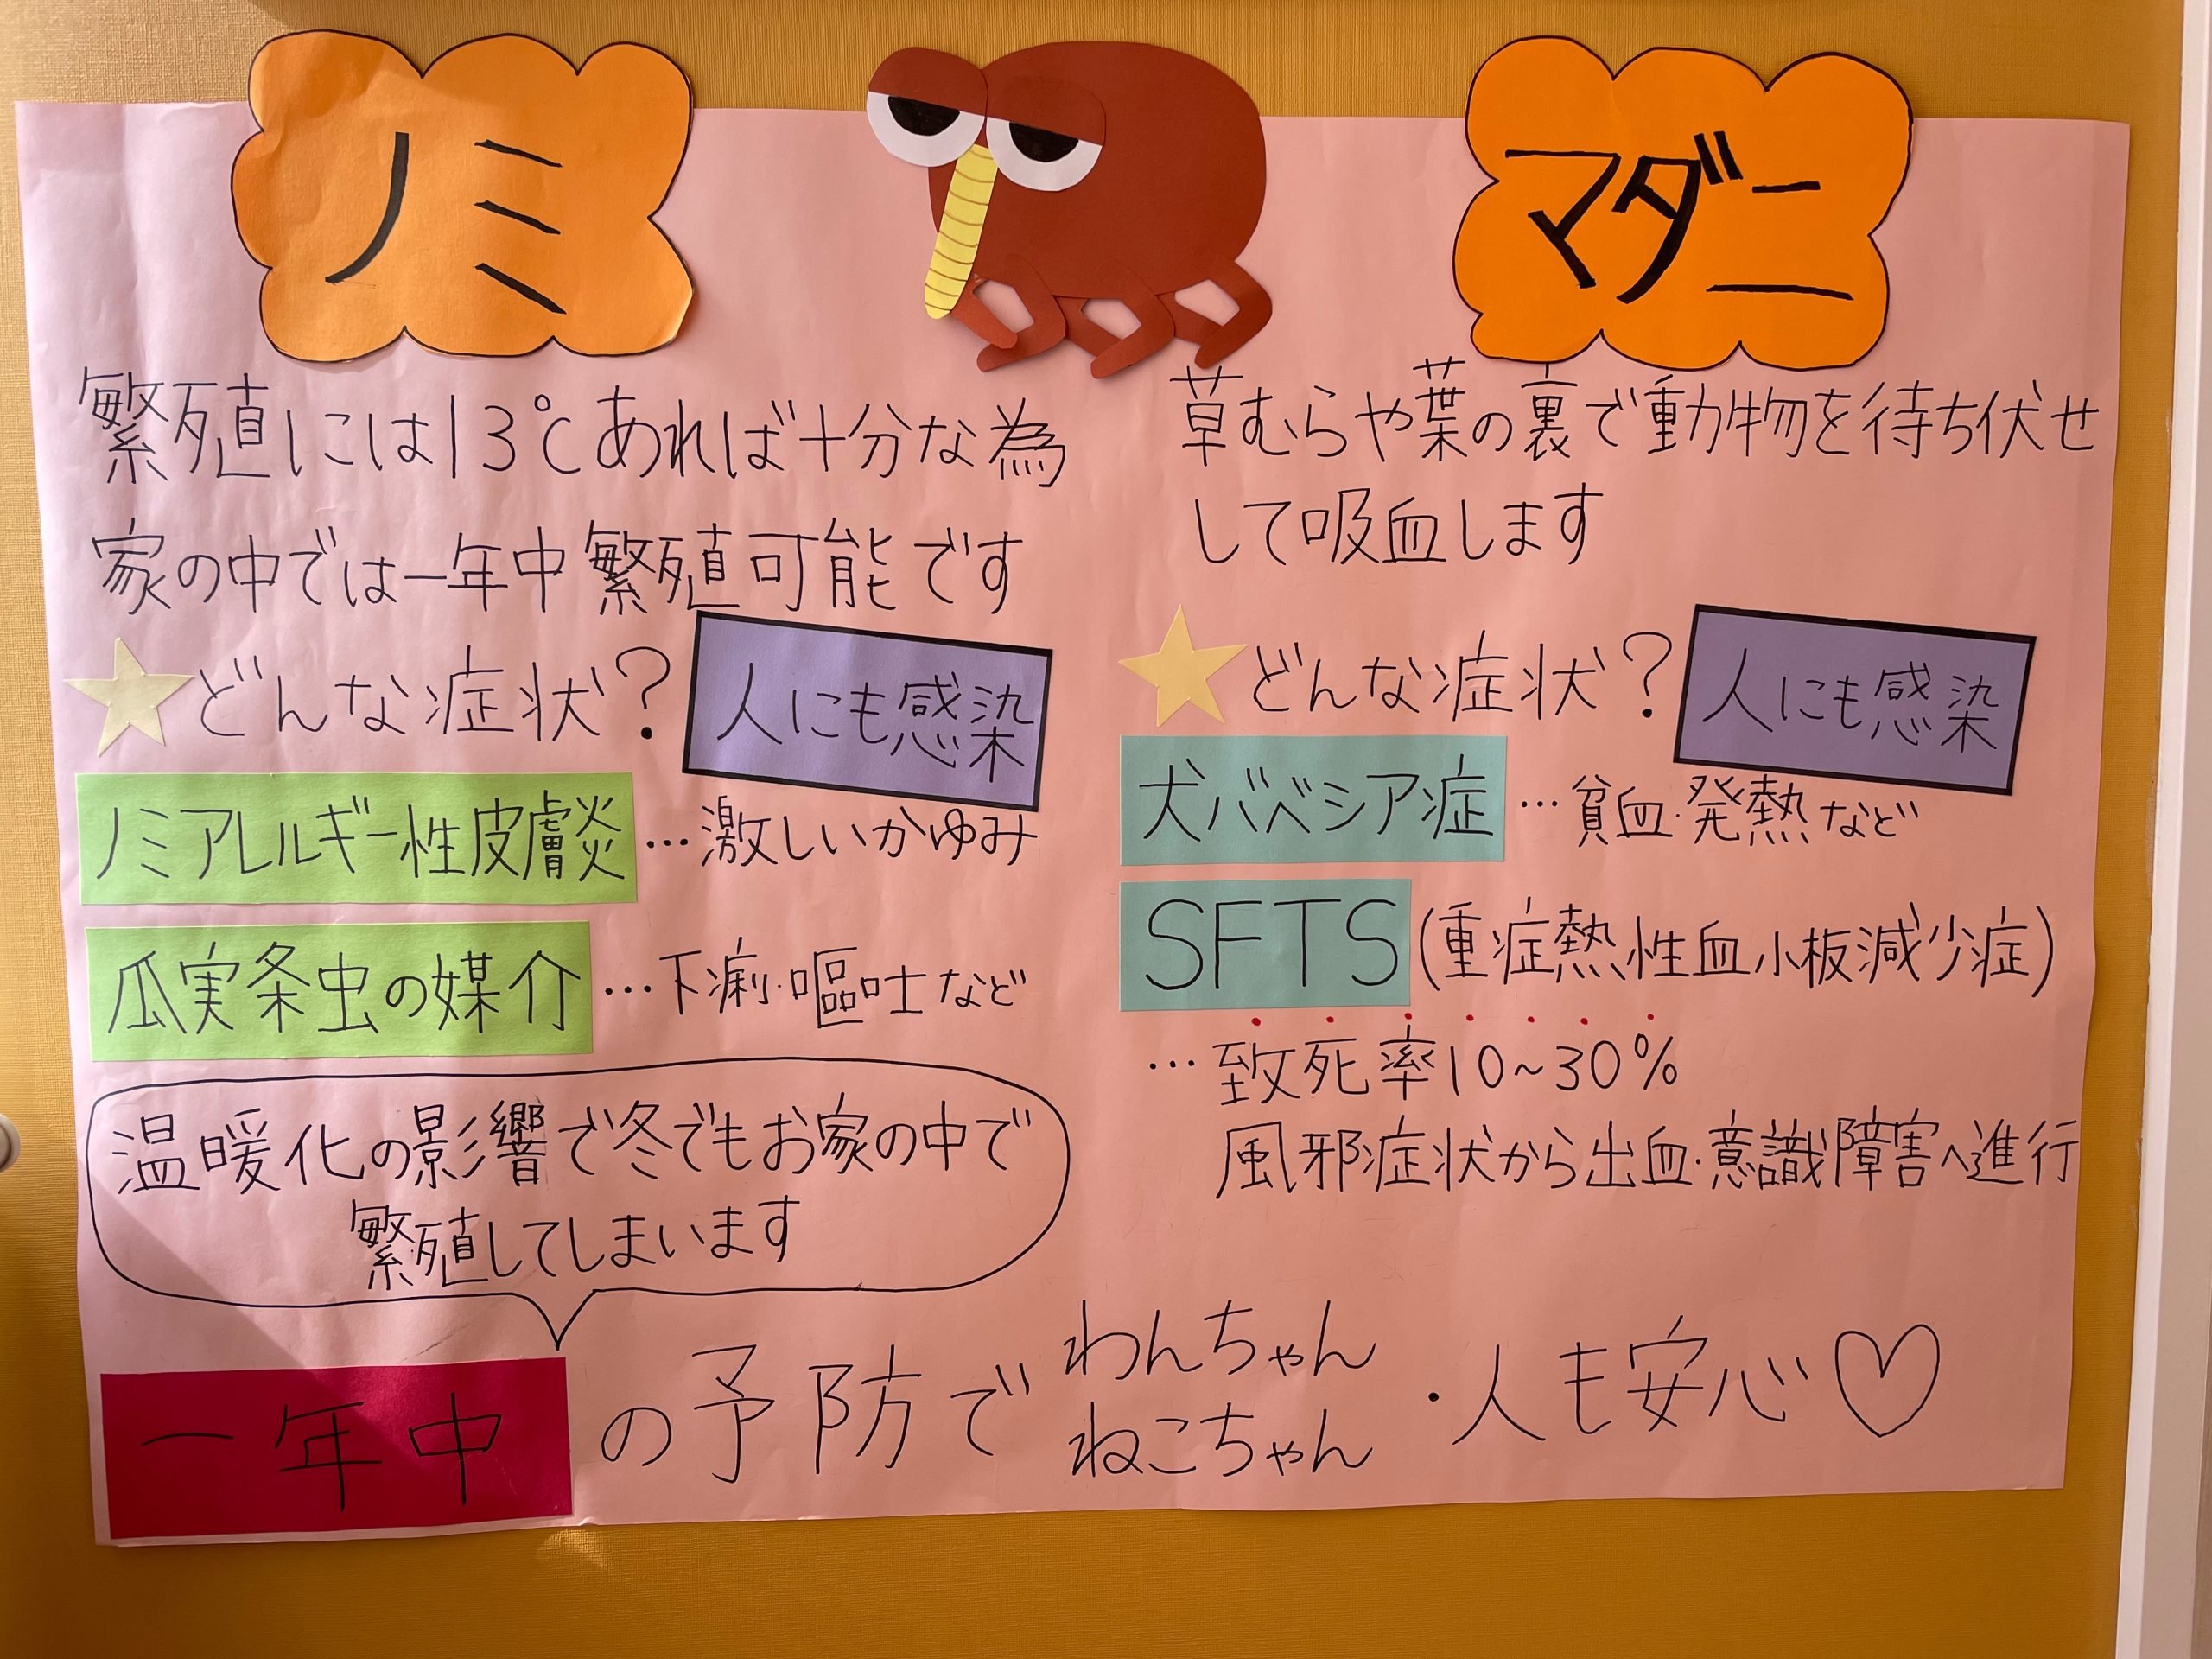 ノミ
繁殖には13℃あれば十分な為
家の中では一年中繁殖可能です
どんな症状?
人にも感染
ノミアレルギー性皮膚炎…激しいかゆみ
瓜実条虫の媒介…下痢・嘔吐など
温暖化の影響で冬でもお家の中で
繁殖してしまいます
マダニ
草むらや葉の裏で動物を待ち伏せ
して吸血します
どんな症状?
人にも感染
犬バベシア症…貧血・発熱など
SFTS(重症熱性血小板減少症)
…致死率10~30%
風邪症状から出血・意識障害へ進行
一年中の予防でわんちゃん
ねこちゃん・人も安心♡